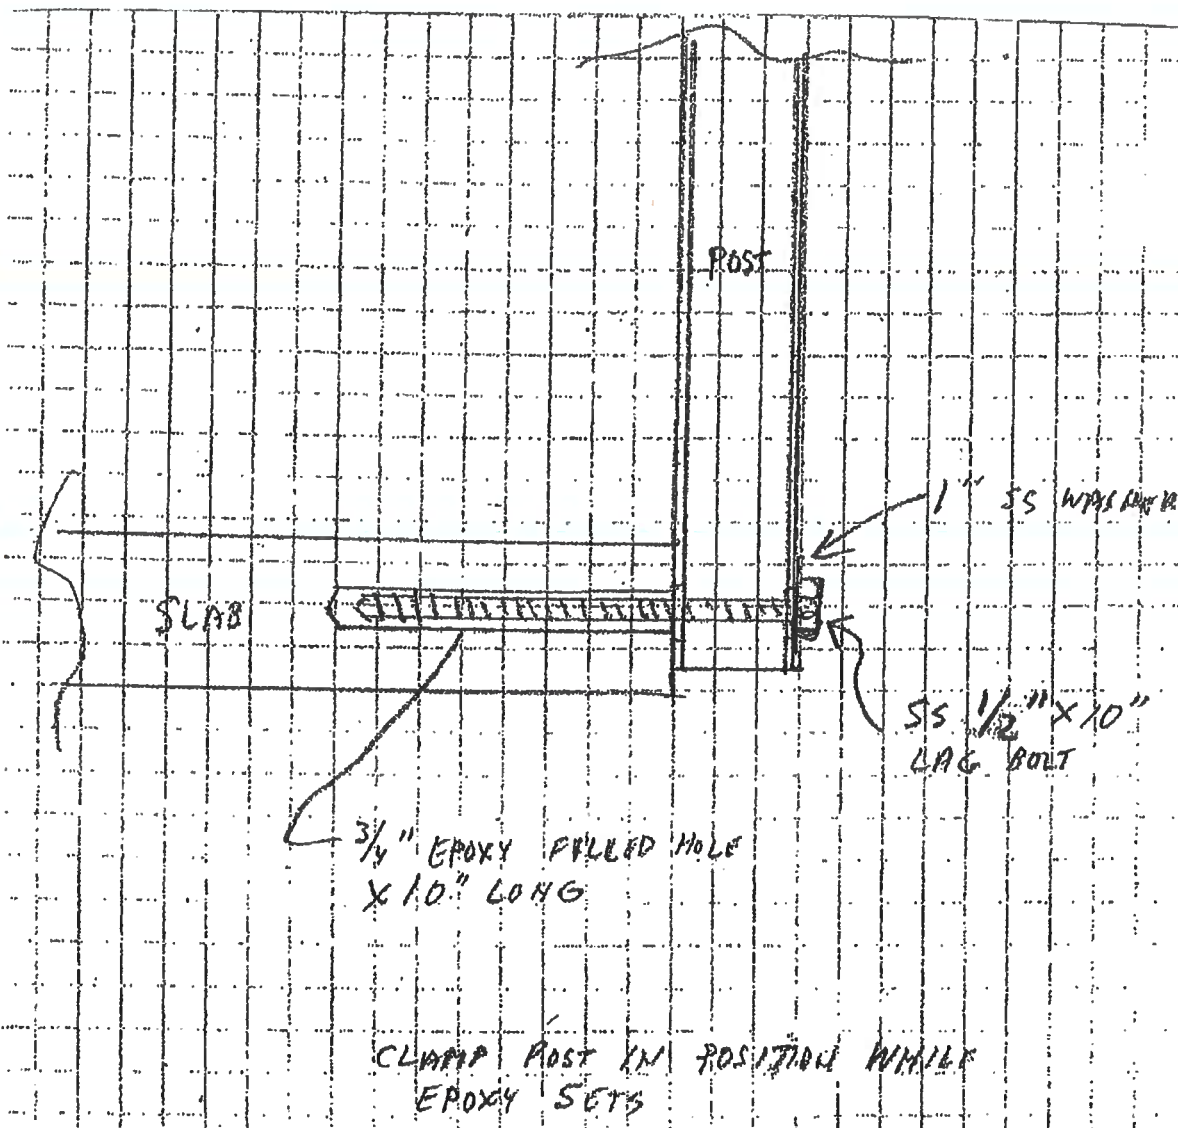 POST
1" SS WASHER
SLAB
SS 1/2" X 10"
LAG BOLT
3/4" EPOXY FILLED HOLE
X 10" LONG
CLAMP POST IN POSITION WHILE
EPOXY SETS